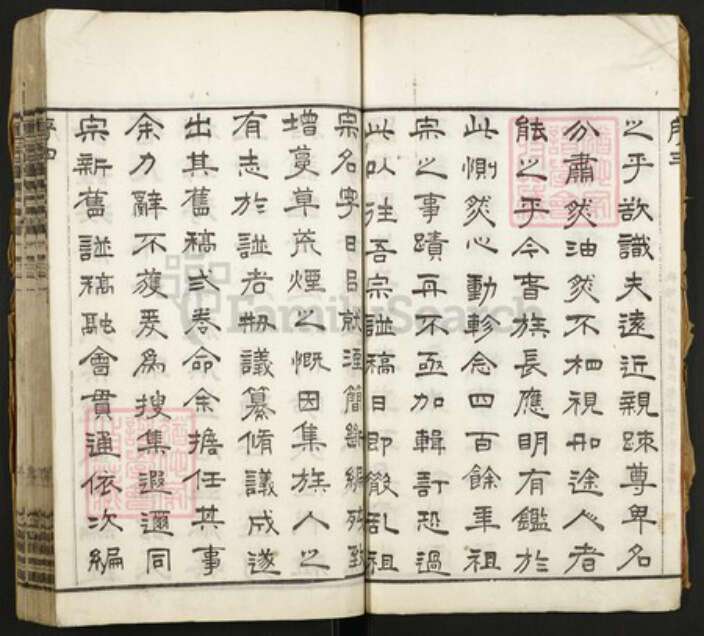 序三
之乎欲識夫遠近親疎尊卑名
分肅然油然不相視如途人者
能之乎今春族長應明有鑑於
此惻然心動軫念四百餘年祖
宗之事蹟再不亟加輯訂恐過
此以往吾宗譜稿日即散亂祖
宗名字日呂就湮簡斷編殘致
增蔓草荒煙之慨因集族人之
有志於譜者刱議纂脩議成遂
出其舊稿弍卷命余擔任其事
余力辭不獲爰為搜集遐邇同
宗新舊譜稿融會貫通依次編
序四
FamilySearch